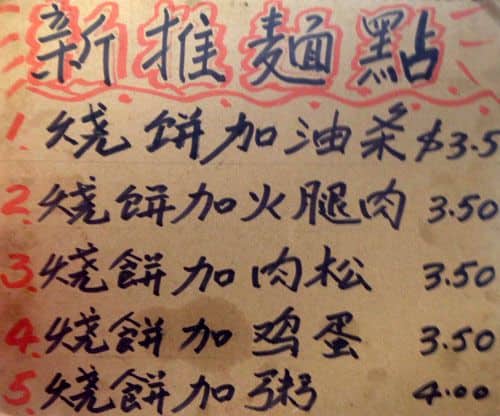 新推麵點
1. 烧餅加油条 $3.5
2. 烧餅加火腿肉 3.50
3. 烧餅加肉松 3.50
4. 烧餅加鸡蛋 3.50
5. 烧餅加粥 4.00